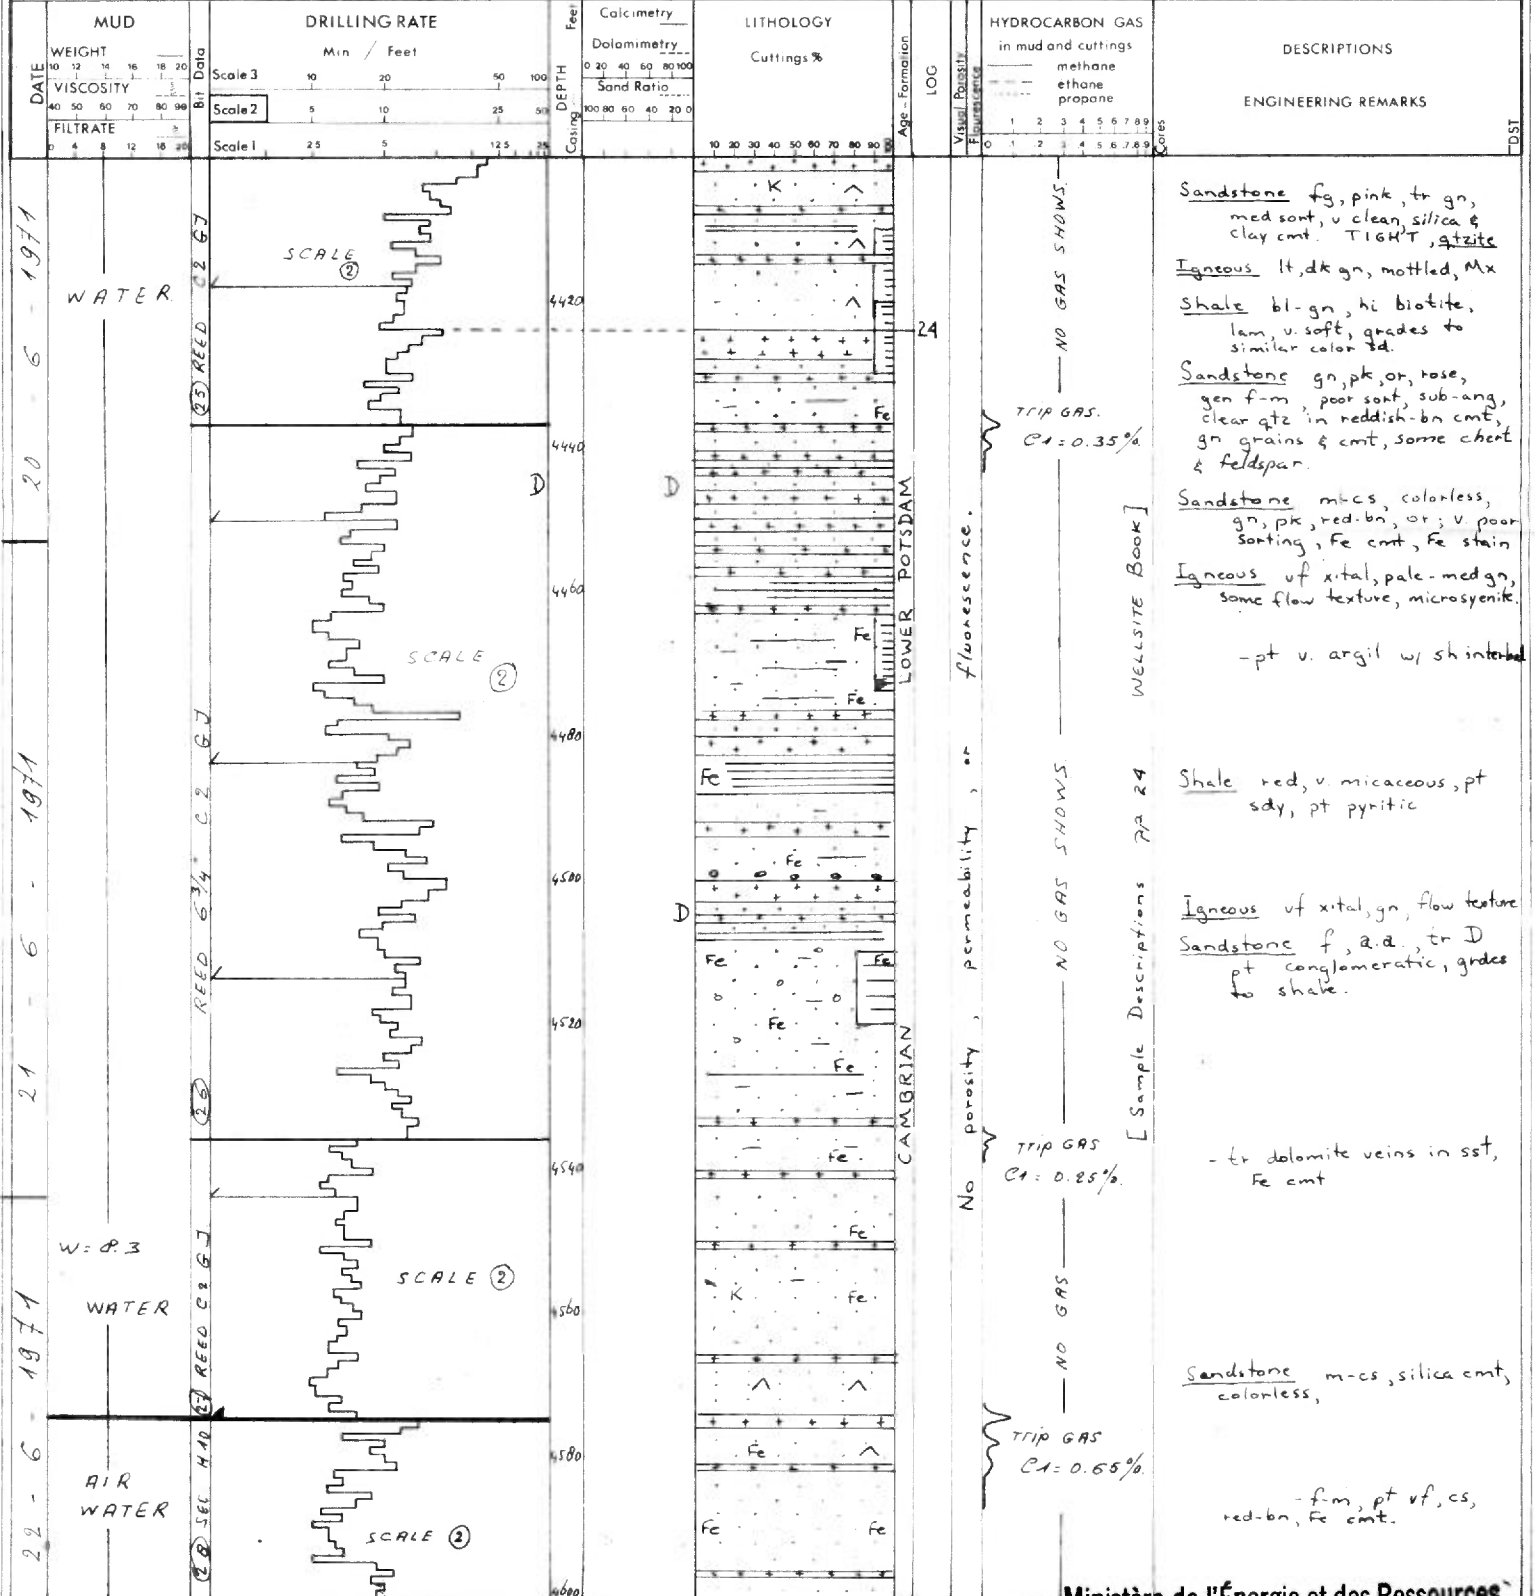 MUD
WEIGHT
10 12 14 16 18 20
VISCOSITY
40 50 60 70 80 90
FILTRATE
0 4 8 12 16 20
DATE
Bit Data
DRILLING RATE
Min / Feet
Scale 3 10 20 50 100
Scale 2 5 10 25 50
Scale 1 2.5 5 12.5 25
DEPTH
Casing Feet
Calcimetry
Dolomimetry
0 20 40 60 80 100
Sand Ratio
100 80 60 40 20 0
LITHOLOGY
Cuttings %
10 20 30 40 50 60 70 80 90
Age - Formation
LOG
Visual Porosity
Fluorescence
HYDROCARBON GAS
in mud and cuttings
methane
ethane
propane
1 2 3 4 5 6 7 8 9
0 .1 .2 .3 .4 .5 .6 .7 .8 .9
Cores
DESCRIPTIONS
ENGINEERING REMARKS
DST
20 - 6 - 1971
21 - 6 - 1971
22 - 6 - 1971
WATER
W = 8.3
WATER
AIR
WATER
25 REED C2 GJ
26 REED 6 3/4" C2 GJ
27 REED C2 GJ
28 SEC H10
SCALE
2
SCALE
2
SCALE 2
SCALE 2
D
4420
4440
4460
4480
4500
4520
4540
4560
4580
4600
D
D
K
Fe
Fe
Fe
Fe
Fe
Fe
Fe
Fe
Fe
Fe
Fe
K
Fe
Fe
Fe
Fe
24
LOWER POTSDAM
CAMBRIAN
No porosity, permeability, or fluorescence.
NO GAS SHOWS.
TRIP GAS.
C1 = 0.35%.
NO GAS SHOWS
TRIP GAS
C1 = 0.25%.
NO GAS
TRIP GAS
C1 = 0.65%.
[Sample Descriptions pp 24 WELLSITE BOOK]
Sandstone fg, pink, tr gn,
med sort, v clean, silica &
clay cmt. TIGHT, qtzite
Igneous lt, dk gn, mottled, Mx
Shale bl-gn, hi biotite,
lam, v. soft, grades to
similar color sd.
Sandstone gn, pk, or, rose,
gen f-m, poor sort, sub-ang,
clear qtz in reddish-bn cmt,
gn grains & cmt, some chert
& feldspar.
Sandstone m-cs, colorless,
gn, pk, red-bn, or; v. poor
sorting, Fe cmt, Fe stain
Igneous vf xital, pale-med gn,
some flow texture, microsyenite.
- pt v. argil w/ sh interbed
Shale red, v. micaceous, pt
sdy, pt pyritic
Igneous vf xital, gn, flow texture
Sandstone f, a.a., tr D
pt conglomeratic, grdes
to shale.
- tr dolomite veins in sst,
Fe cmt
Sandstone m-cs, silica cmt,
colorless,
- f-m, pt vf, cs,
red-bn, Fe cmt.
Ministère de l'Énergie et des Ressources